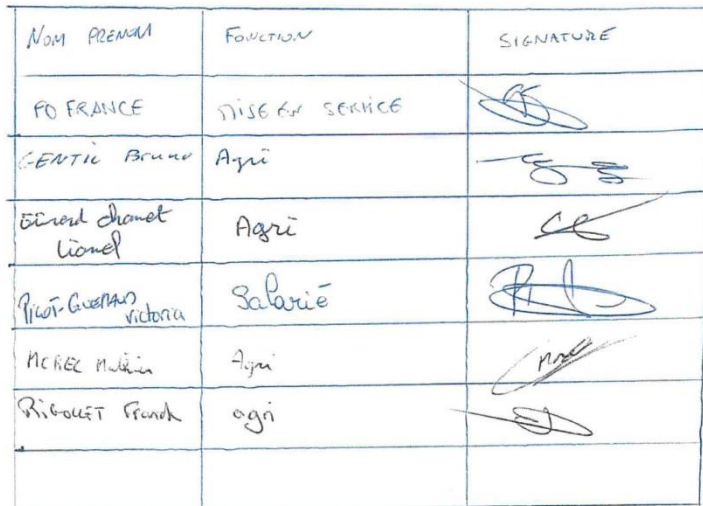 NOM PRENOM FONCTION SIGNATURE
FO FRANCE MISE EN SERVICE
GENTIL Bruno Agri
Girard Chomet Agri
Lionel
PICOT-GUERAUD Salarié
Victoria
MOREL Mathieu Agri
RIGOLLET Franck agri